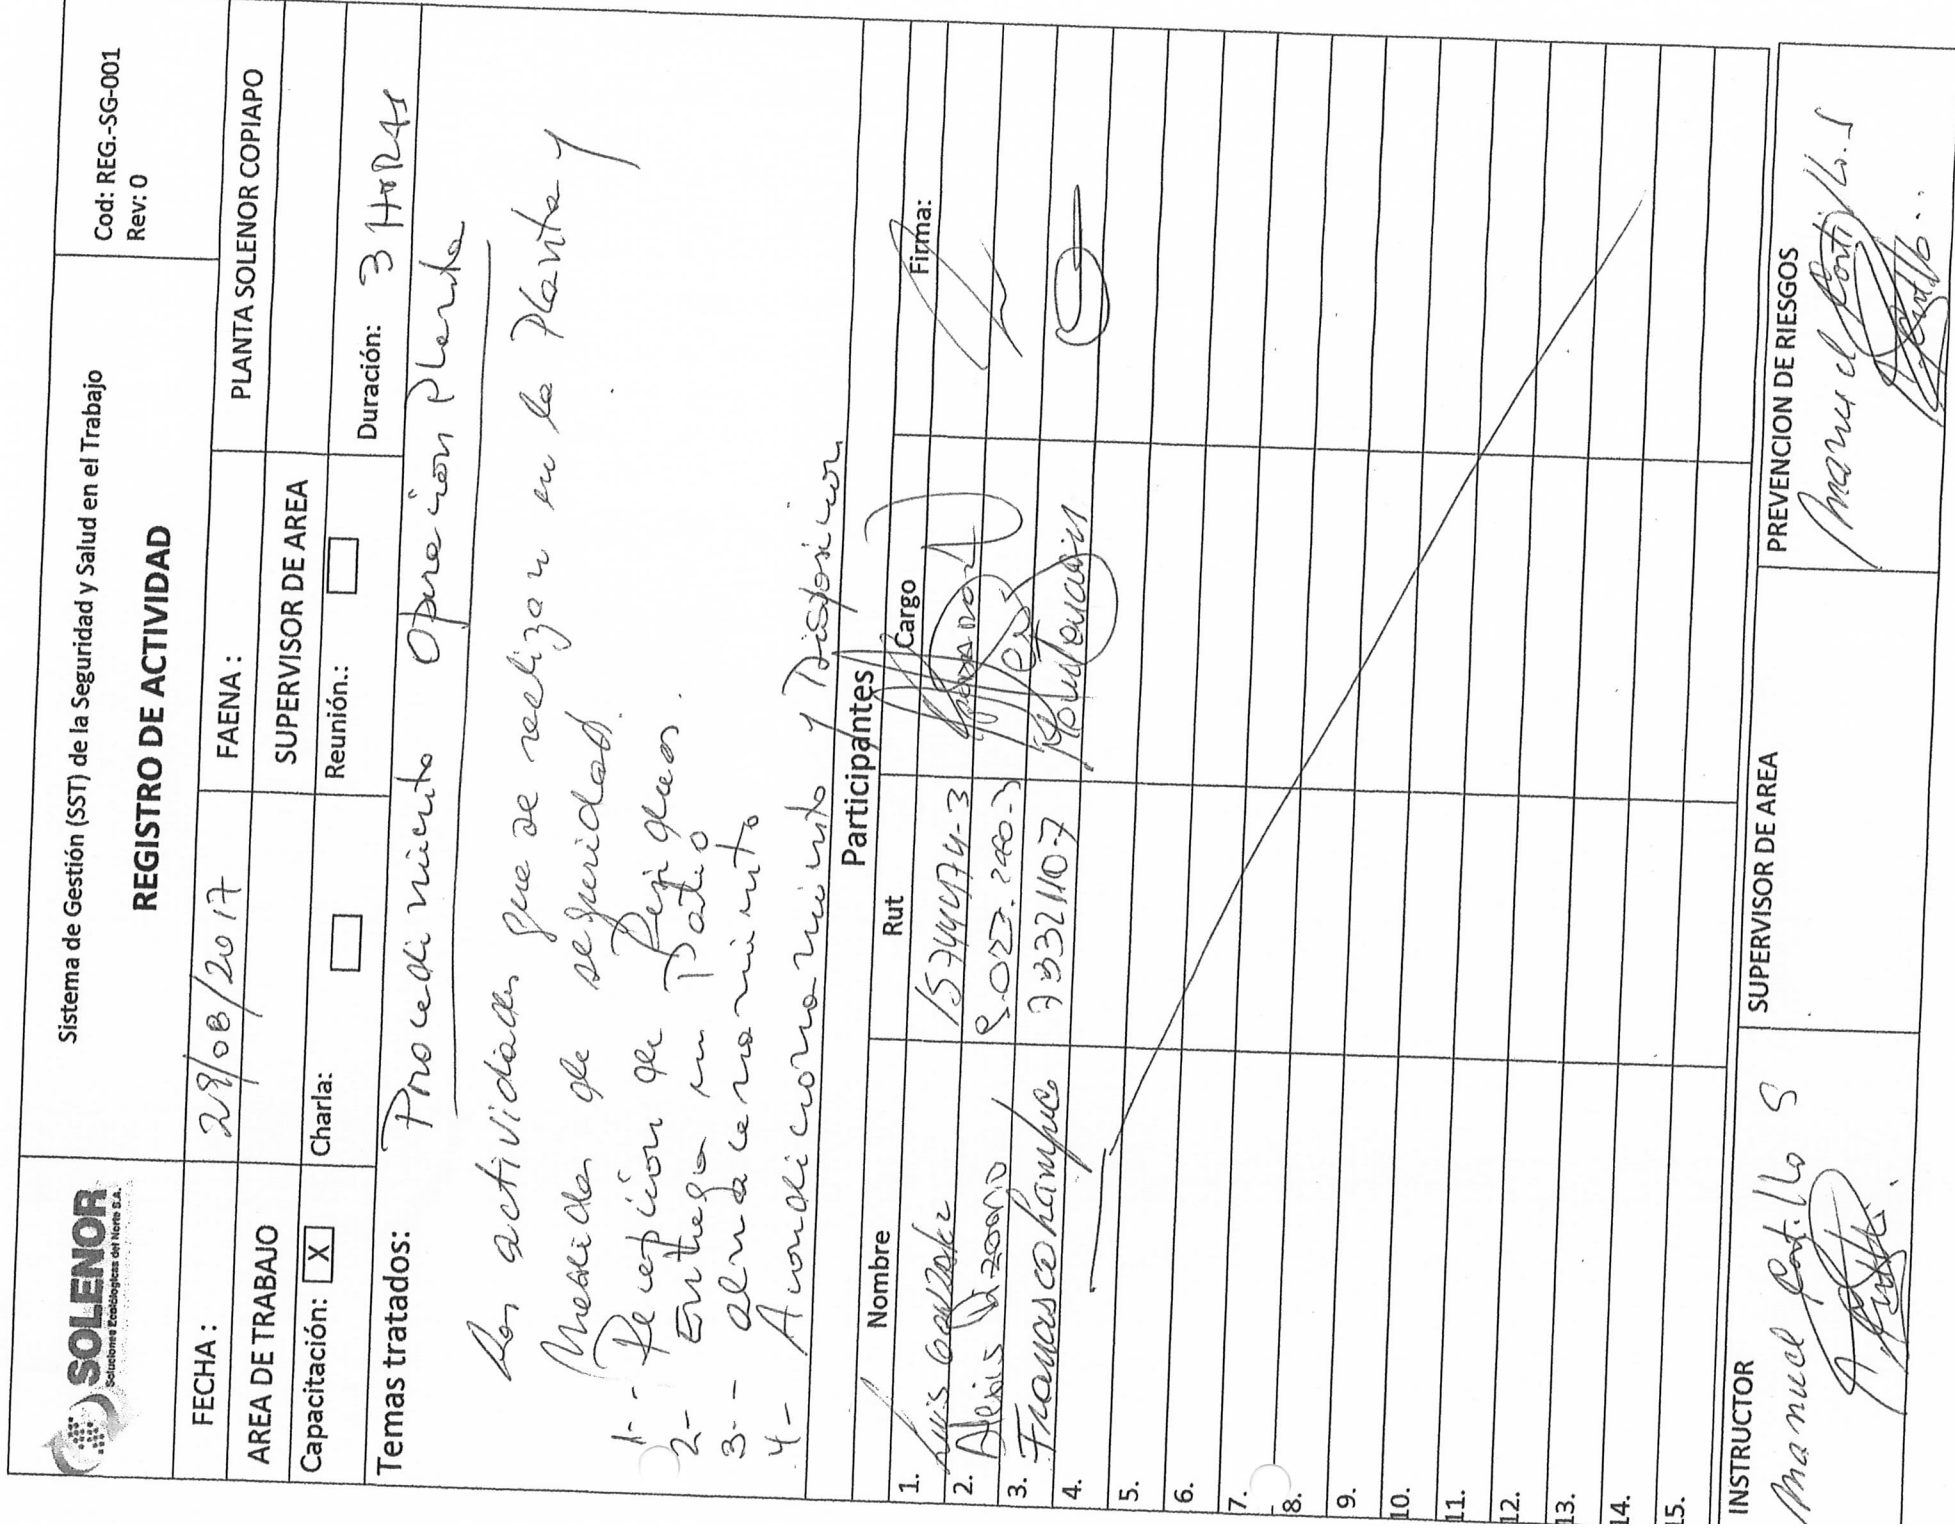 SOLENOR
Soluciones Ecológicas del Norte S.A.
Sistema de Gestión (SST) de la Seguridad y Salud en el Trabajo
REGISTRO DE ACTIVIDAD
Cod: REG.-SG-001
Rev: 0
FECHA : 28/08/2017 FAENA : PLANTA SOLENOR COPIAPO
AREA DE TRABAJO SUPERVISOR DE AREA
Capacitación: X Charla: Reunión.: Duración: 3 HORAS
Temas tratados: Procedimiento Operacion Planta
Las actividades que se realizan en la Planta y
Medidas de seguridad.
1.- Recepcion de
2- Entrega en Patio
3-- almacenamiento
4- Acondicionamiento y Disposicion
Participantes
Nombre Rut Cargo Firma:
1. Luis 15744474-3
2. Alexis
3. Francisco
4.
5.
6.
7.
8.
9.
10.
11.
12.
13.
14.
15.
INSTRUCTOR SUPERVISOR DE AREA PREVENCION DE RIESGOS
Manuel Castillo S Manuel Castillo. S